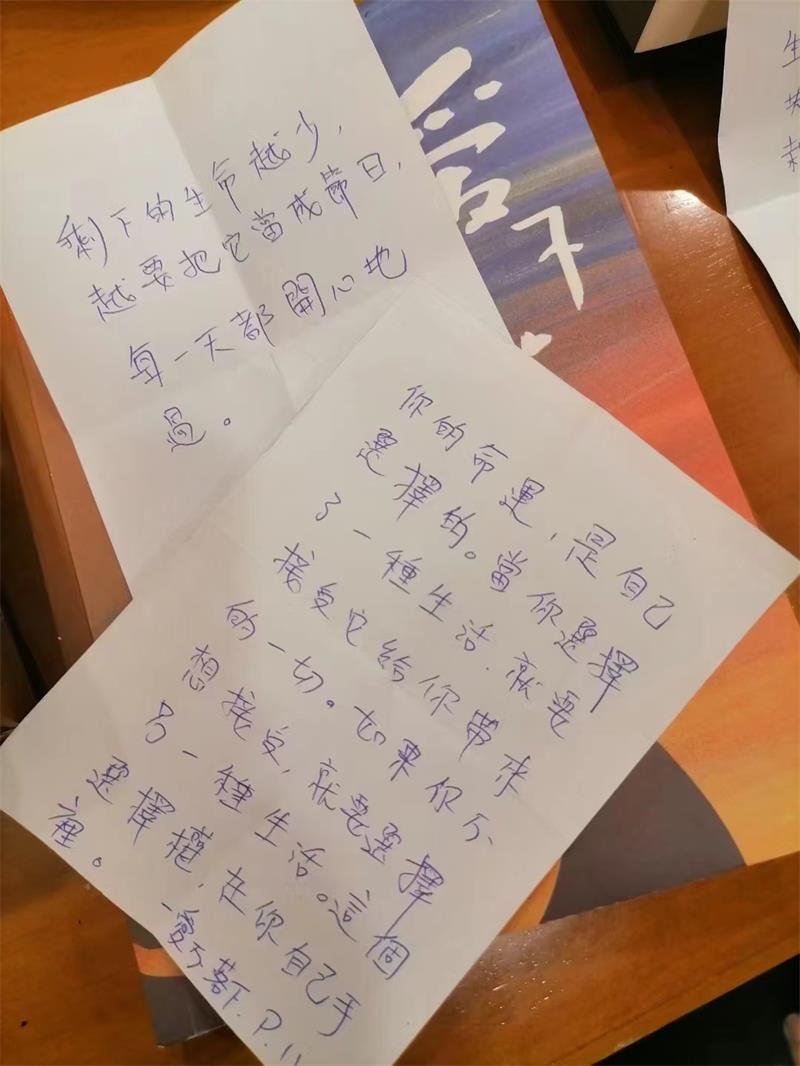 剩下的生命越少,
越要把它當成節日,
每一天都開心地
過。
愛不
你的命運,是自己
選擇的。當你選擇
了一種生活,就要
接受它給你帶來
的一切。如果你不
想接受,就要選擇
另一種生活。這個
選擇權,在你自己手
裡。
-愛不落下. P.11
生